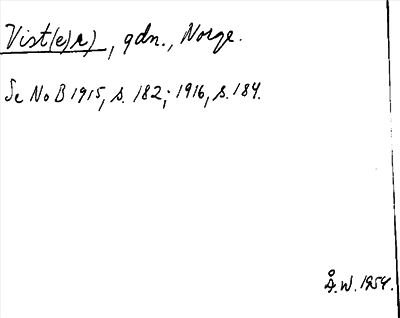 Vist(e)r), gdn., Norge.
Se NoB 1915, s. 182; 1916, s. 184.
Å. W. 1954.